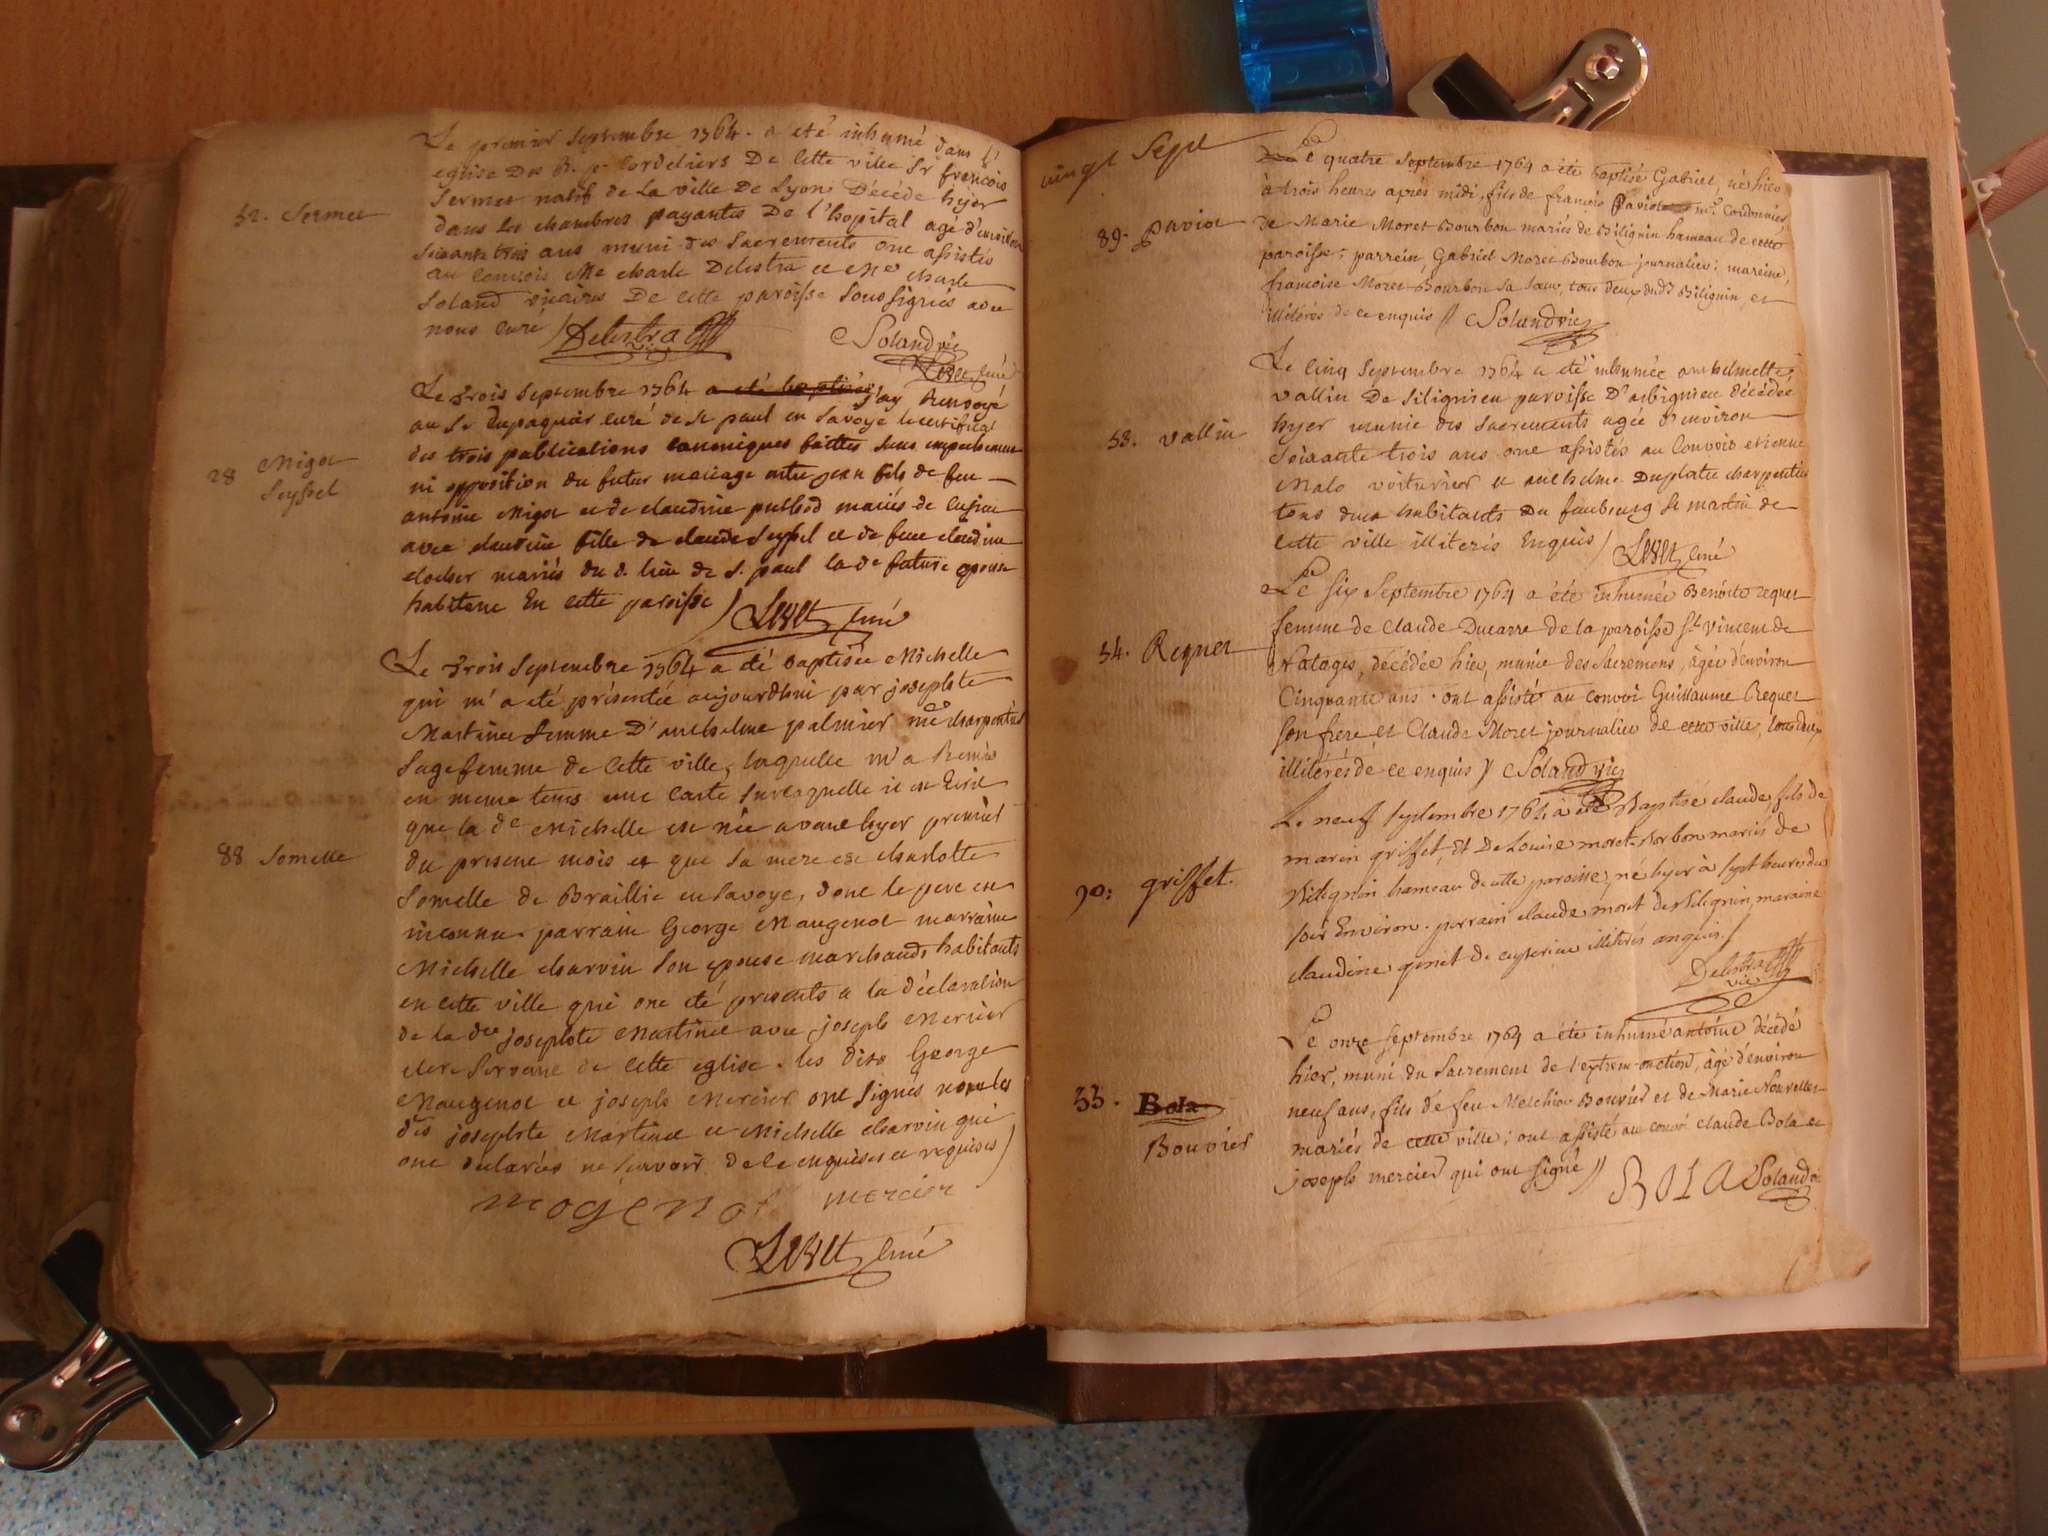 Le premier Septembre 1764. a été inhumé dans l'
eglise Des R. p. Cordeliers De Cette ville Sr françois
52. Sermet
Sermet natif de La ville De Lyon Décédé hyer
dans les chambres payantes De l'hopital agé d'environ
soixante trois ans muni des Sacrements ont assistés
au Convois Me charle Delestra et Me charle
Soland vicaires De Cette paroisse Soussignés avec
nous Curé / Delestra vic
Solandvic
Curé
Le trois Septembre 1764 a été baptisée j'ay Renvoyé
au Sr Dupaquier curé de St paul en Savoye le certificat
des trois publications canoniques faittes sans empechement
28 Migot
Seyssel
ni opposition du futur mariage entre jean fils de feu
antoine Migot et de claudine mariés de
avec claudine fille de claude Seyssel et de feue claudine
clocher mariés du d. lieu de S. paul la de future epouse
habitante En Cette paroisse / Curé
Le trois Septembre 1764 a été baptisée Michelle
qui m'a été présentée aujourdhui par josephte
Martinet femme D'anthelme palmier me charpentier
Sagefemme de Cette ville, laquelle m'a Remis
en meme tems une Carte Sur laquelle il est Ecrit
que la de Michelle est née avant hyer premier
88 Somelle
du présent mois et que Sa mere est charlotte
Somelle de Braillie en Savoye, dont le pere est
inconnu. parrain George Maugenot marraine
Michelle charvin Son epouse marchands habitants
en cette ville qui ont été présents a la déclaration
de la dte josephte Martinet avec joseph Mercier
clerc Servant de Cette eglise. les dits George
Maugenot et joseph Mercier ont Signés non les
dtes josephte Martinet et Michelle charvin qui
ont declarées ne Scavoir de ce enquises et requises /
mogenot mercier
Curé
vingt Sept
Le quatre Septembre 1764 a été baptisé Gabriel, né hier
à trois heures après midi, fils de françois Paviot me Cordonnier
89. paviot
de Marie Moret Bourbon mariés de Bilignin hameau de cette
paroisse; parrein, Gabriel Moret-Bourbon journalier; mareine,
françoise Moret-Bourbon Sa Soeur, tous deux dudt Bilignin et
illitérés de ce enquis // Solandvic
Le Cinq Septembre 1764 a été inhumée anthelmette
vallin De Silignieu paroisse D'arbignieu décédée
53. vallin
hyer munie des Sacrements agée d'environ
Soixante trois ans ont assistés au Convois etienne
Malo voiturier et anthelme Duplatre charpentier
tous deux habitants Du faubourg St martin de
Cette ville illiterés Enquis / Curé
Le Six Septembre 1764 a été inhumée Benoîte requet
femme de Claude Ducarre de la paroisse St. Vincent de
54. Requet
Natages, décédée hier, munie des Sacremens, âgée d'environ
Cinquante ans. ont assisté au convoi Guillaume Requet
Son frere et Claude Moret journalier de cette ville, tous deux
illitérés de ce enquis // Solandvic
Le neuf Septembre 1764 a été Baptisé claude, fils de
marin griffet, Et De Louise moret-Borbon mariés de
90: griffet.
Bilignin hameau de cette paroisse, né hyer à Sept heures du
Soir Environ. parrain claude moret de Bilignin, maraine
claudine de illiterés enquis /
Delestra vic
Le onze Septembre 1764 a été inhumé antoine décédé
hier, muni du Sacrement de l'extrême-onction, âgé d'environ
55. Bola
Bouvier
neuf ans, fils de feu Melchior Bouvier et de Marie Nouvelle
mariés de cette ville; ont assisté au convoi claude Bola et
joseph mercier qui ont signé // BOLA Solandvic